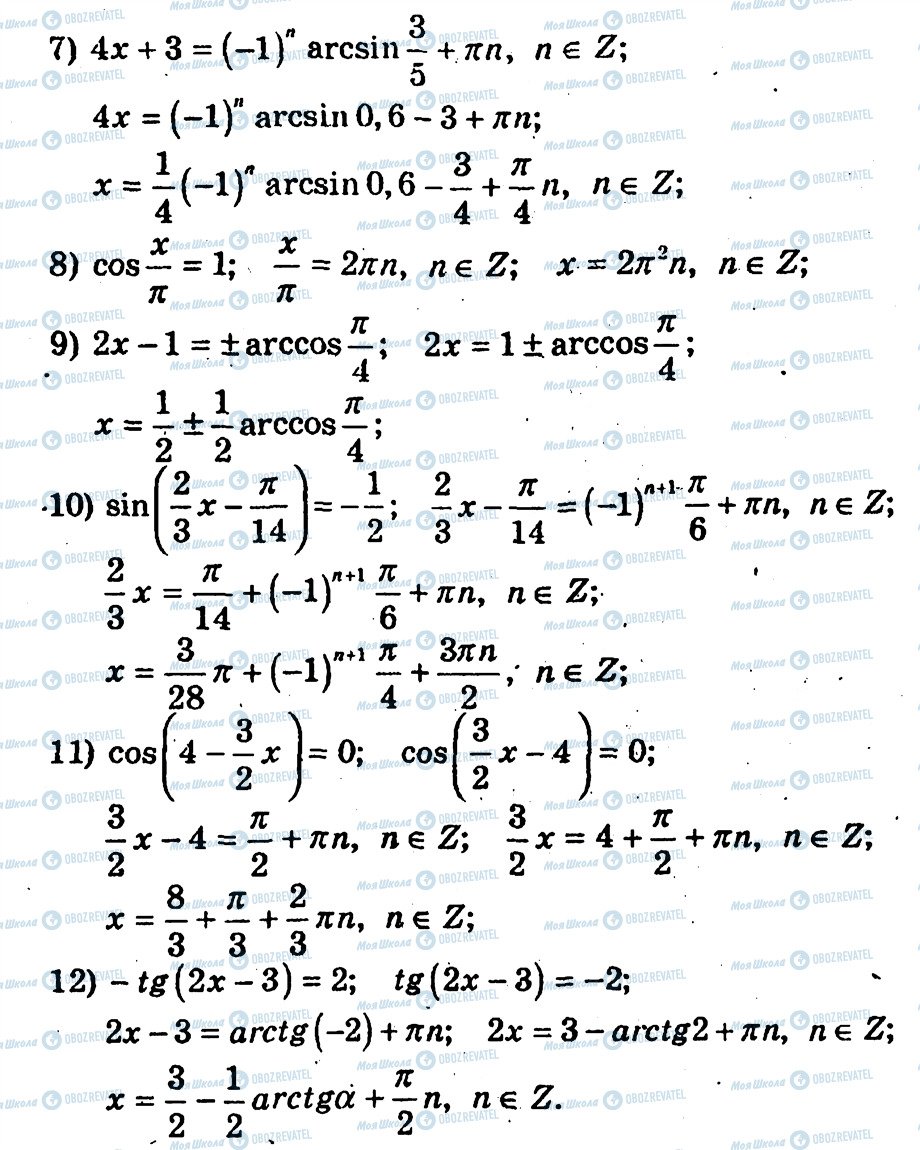 7) 4x + 3 = (−1)ⁿ arcsin 3/5 + πn, n ∈ Z;
4x = (−1)ⁿ arcsin 0,6 − 3 + πn;
x = 1/4 (−1)ⁿ arcsin 0,6 − 3/4 + π/4 n, n ∈ Z;
8) cos x/π = 1; x/π = 2πn, n ∈ Z; x = 2π²n, n ∈ Z;
9) 2x − 1 = ± arccos π/4; 2x = 1 ± arccos π/4;
x = 1/2 ± 1/2 arccos π/4;
10) sin(2/3 x − π/14) = −1/2; 2/3 x − π/14 = (−1)ⁿ⁺¹ π/6 + πn, n ∈ Z;
2/3 x = π/14 + (−1)ⁿ⁺¹ π/6 + πn, n ∈ Z;
x = 3/28 π + (−1)ⁿ⁺¹ π/4 + 3πn/2; n ∈ Z;
11) cos(4 − 3/2 x) = 0; cos(3/2 x − 4) = 0;
3/2 x − 4 = π/2 + πn, n ∈ Z; 3/2 x = 4 + π/2 + πn, n ∈ Z;
x = 8/3 + π/3 + 2/3 πn, n ∈ Z;
12) − tg(2x − 3) = 2; tg(2x − 3) = −2;
2x − 3 = arctg(−2) + πn; 2x = 3 − arctg2 + πn, n ∈ Z;
x = 3/2 − 1/2 arctgα + π/2 n, n ∈ Z.
Моя Школа OBOZREVATEL